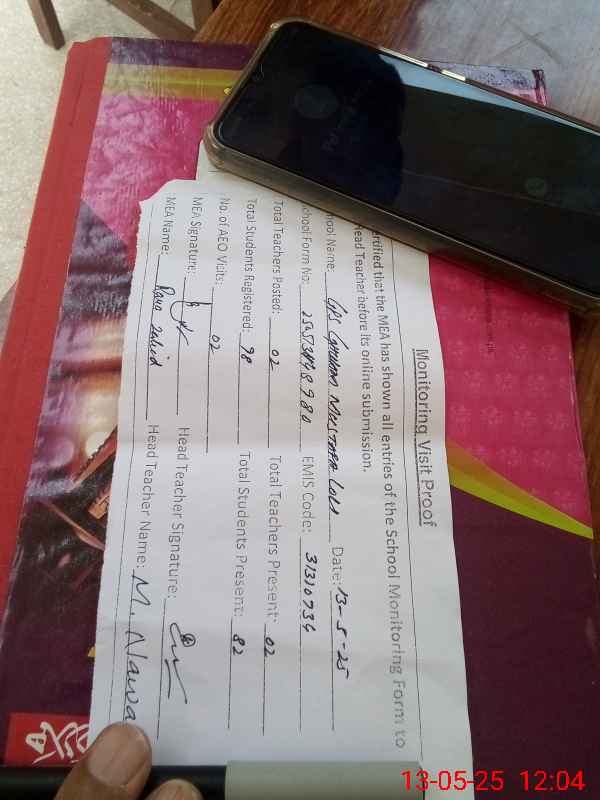 Monitoring Visit Proof
ertified that the MEA has shown all entries of the School Monitoring Form to
Head Teacher before its online submission.
hool Name: GPS Date: 13-5-25
chool Form No: EMIS Code: 31310734
Total Teachers Posted: 02 Total Teachers Present: 02
Total Students Registered: 98 Total Students Present: 82
No. of AEO Visits: 02
MEA Signature: Head Teacher Signature:
MEA Name: Rana Zahid Head Teacher Name: M. Nawa
13-05-25 12:04